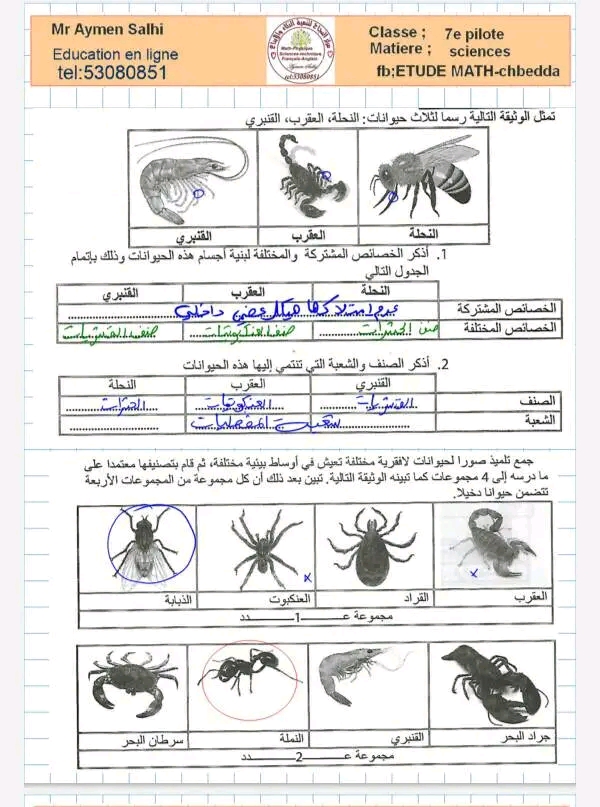 Mr Aymen Salhi
Education en ligne
tel:53080851
Math-Physique
Sciences-technique
Français-Anglais
Aymen Salhi
tel:53080851
Classe ; 7e pilote
Matiere ; sciences
fb;ETUDE MATH-chbedda
تمثل الوثيقة التالية رسما لثلاث حيوانات: النحلة، العقرب، القنبري
النحلة العقرب القنبري
1. أذكر الخصائص المشتركة والمختلفة لبنية أجسام هذه الحيوانات وذلك بإتمام
الجدول التالي
النحلة العقرب القنبري
الخصائص المشتركة عدم امتلاكها هيكل عظمي داخلي
الخصائص المختلفة صنف الحشرات صنف العنكبوتيات صنف القشريات
2. أذكر الصنف والشعبة التي تنتمي إليها هذه الحيوانات
القنبري العقرب النحلة
الصنف القشريات العنكبوتيات الحشرات
الشعبة شعبة المفصليات
جمع تلميذ صورا لحيوانات لافقرية مختلفة تعيش في أوساط بيئية مختلفة، ثم قام بتصنيفها معتمدا على
ما درسه إلى 4 مجموعات كما تبينه الوثيقة التالية. تبين بعد ذلك أن كل مجموعة من المجموعات الأربعة
تتضمن حيوانا دخيلا.
العقرب القراد العنكبوت الذبابة
مجموعة عـــــ1ـــــدد
جراد البحر القنبري النملة سرطان البحر
مجموعة عـــــ2ـــــدد